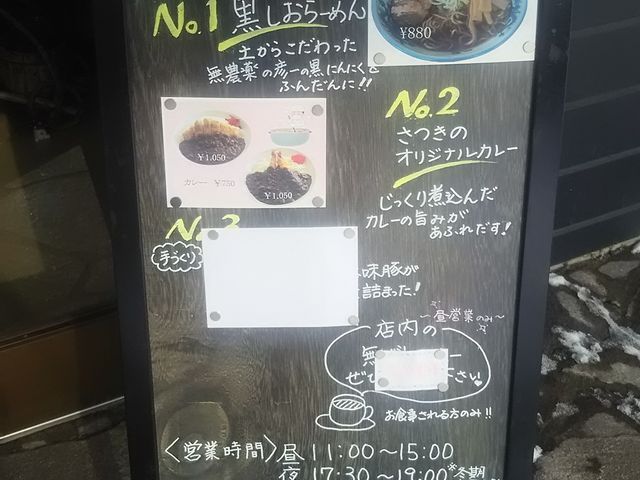 No.1 黒しおらーめん
¥880
土からこだわった
無農薬の彦一の黒にんにくを
ふんだんに!!
No.2
さつきの
オリジナルカレー
¥1,050
カレー ¥750
¥1,050
じっくり煮込んだ
カレーの旨みが
あふれだす!
No.3
手づくり
味豚が
詰まった!
~昼営業のみ~
店内の
無
ぜひ
さい
お食事される方のみ!!
〈営業時間〉昼 11:00~15:00
夜 17:30~19:00 ※冬期